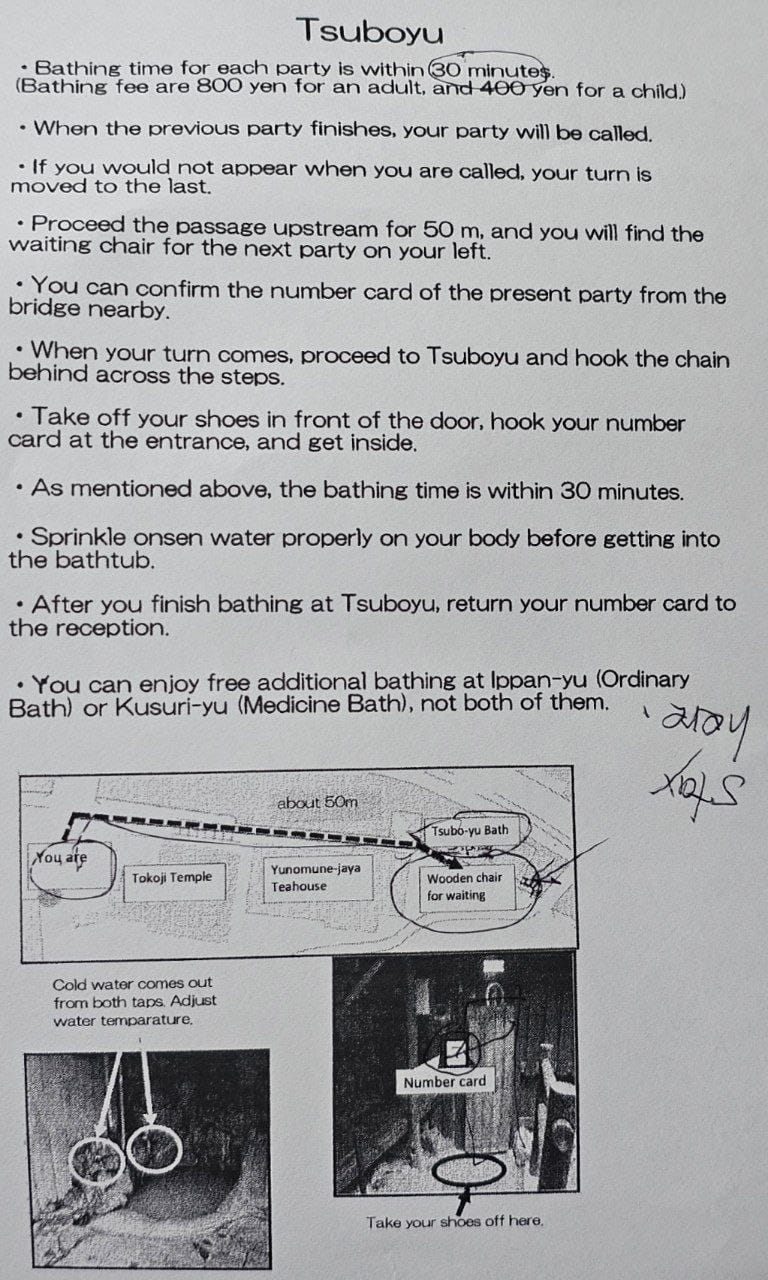 Tsuboyu
・Bathing time for each party is within 30 minutes.
(Bathing fee are 800 yen for an adult, and 400 yen for a child.)
・When the previous party finishes, your party will be called.
・If you would not appear when you are called, your turn is
moved to the last.
・Proceed the passage upstream for 50 m, and you will find the
waiting chair for the next party on your left.
・You can confirm the number card of the present party from the
bridge nearby.
・When your turn comes, proceed to Tsuboyu and hook the chain
behind across the steps.
・Take off your shoes in front of the door, hook your number
card at the entrance, and get inside.
・As mentioned above, the bathing time is within 30 minutes.
・Sprinkle onsen water properly on your body before getting into
the bathtub.
・After you finish bathing at Tsuboyu, return your number card to
the reception.
・You can enjoy free additional bathing at Ippan-yu (Ordinary
Bath) or Kusuri-yu (Medicine Bath), not both of them.
about 50m
Tsubo-yu Bath
You are
Tokoji Temple
Yunomune-jaya
Teahouse
Wooden chair
for waiting
Cold water comes out
from both taps. Adjust
water temparature.
Number card
Take your shoes off here.